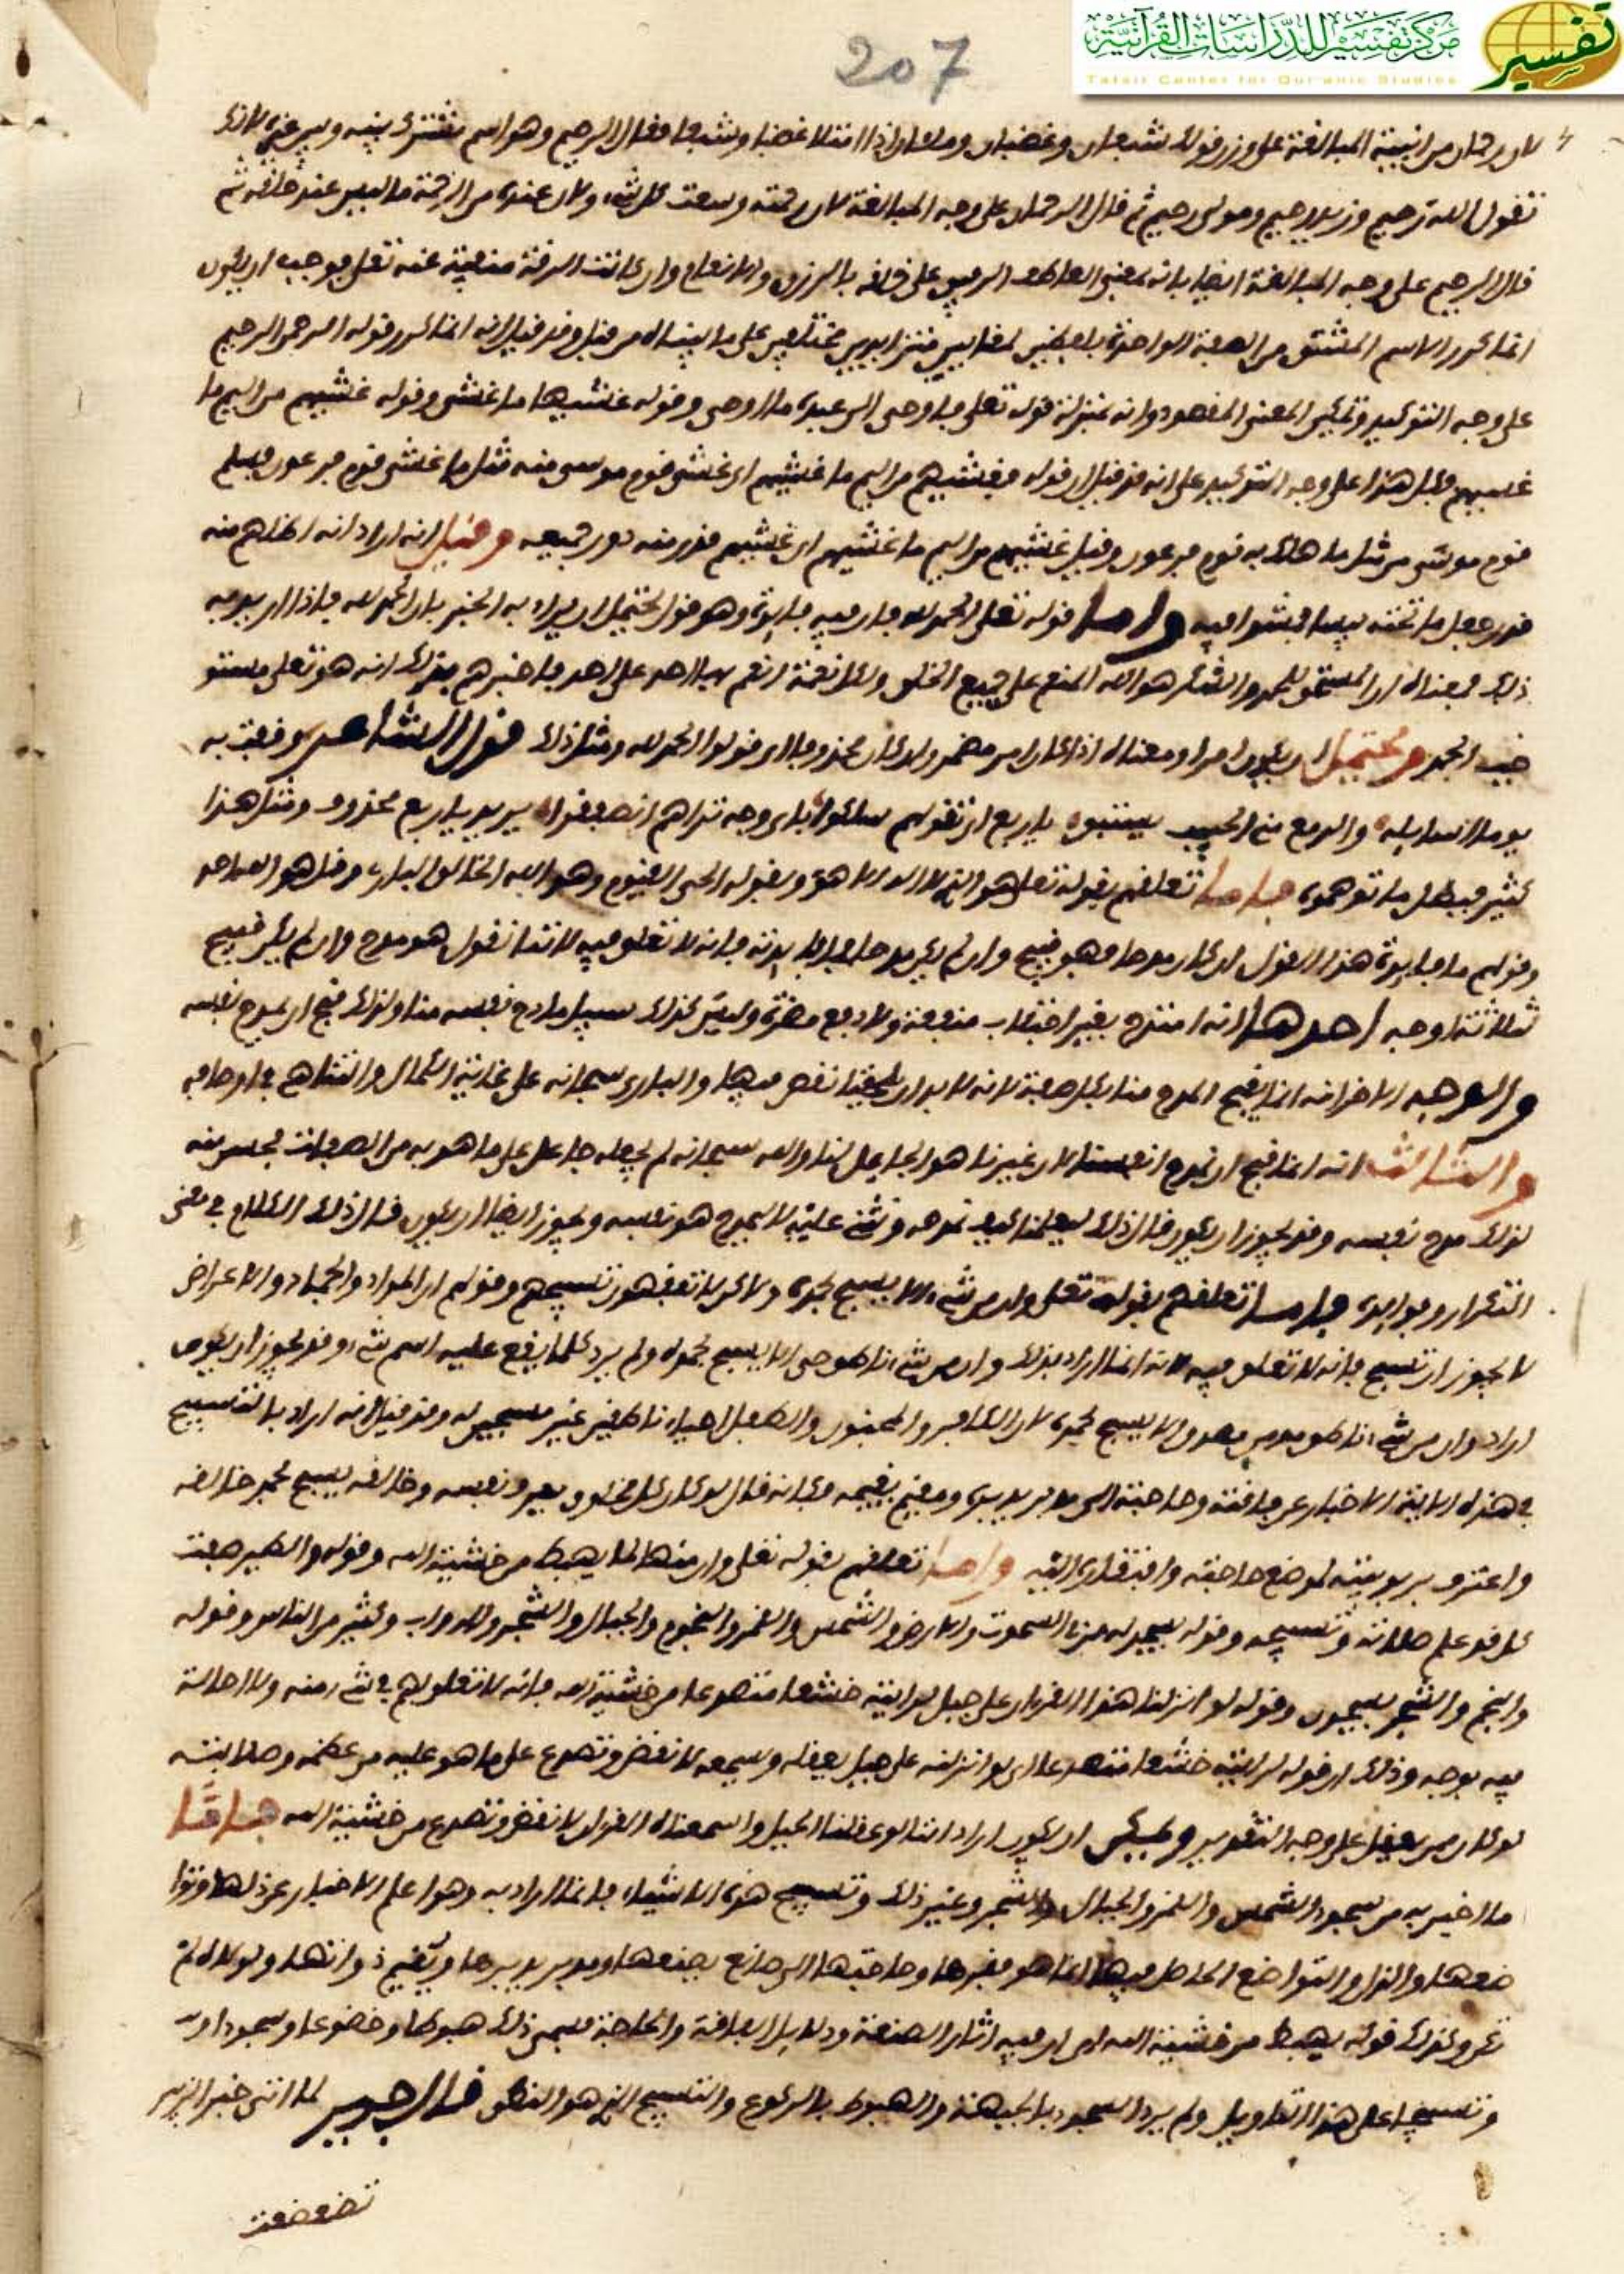 مركز تفسير للدراسات القرآنية
Tafsir Center for Qur'anic Studies
تفسير
207
لان رحمان من ابنية المبالغة على وزن قولك شبعان وغضبان وملان اذا امتلا غضبا وشبعا فقال الرحيم وهو اسم مشترك بينه وبين غيره لانك
تقول الله رحيم وزيد رحيم ومولى رحيم ثم قال الرحمان على وجه المبالغة لان رحمته وسعت كل شيء ولان عنده من الرحمة ما ليس عند خلقه ثم
قال الرحيم على وجه المبالغة ايضا بانه بمعنى العاطف الرفيق على خلقه بالرزق والانعام وان كانت الرقة منفية عنه تعلى فوجب ان يكون
انما كرر الاسم المشتق من الصفة الواحدة بلفظين لمعنيين متزايدين مختلفين على ما بيناه من قبل وقد قيل انه انما كرر قوله الرحمن الرحيم
على وجه التوكيد وتمكين المعنى المقصود وانه بمنزلة قوله تعلى فاوحى الى عبده ما اوحى وقوله غشيها ما غشى وقوله غشيهم من اليم ما
غشيهم وكل هذا على وجه التوكيد على انه قد قيل ان قوله فغشيهم من اليم ما غشيهم اي غشي قوم موسى منه مثل ما غشي قوم فرعون فسلم
قوم موسى من مثل ما هلك به قوم فرعون وقيل غشيهم من اليم ما غشيهم اي غشيهم قدر منه دون جميعه وقيل انه اراد انه
قدر جعل ما تحته يبسا فمشوا فيه واما قوله تعلى الحمد لله فان فيه فايدة وهو قول يحتمل ان يراد به الخبر بان الحمد لله فاذا اريد به
ذلك فمعناه ان المستحق للحمد والشكر هو الله المنعم على جميع الخلق وكل نعمة انعم بها احد على احد فاخبرهم بذلك انه هو تعلى مستو
جب الحمد ويحتمل ان يكون امرا ومعناه اذا كان امر مضمر وان كان محذوفا اي قولوا الحمد لله ومثل ذلك قول الشاعر وقفت به
يوما اسايله والدمع مني يا ربع ان تقولهم سلكوا باي وجه تراهم انصرفوا يريد يا ربع محذوف ومثل هذا
كثير فبطل ما توهموه فاما تعلقهم بقوله تعلى هو الذي لا اله الا هو وبقوله الحي القيوم وهو الله الخالق الباري وقل هو الله احد
وقولهم ما فايدة هذا القول ان كان مدحا فهو قبيح وان لم يكن مدحا فلا فايدة فانه لا تعلق فيه لاننا نقول هو مدح وان لم يكن قبيح
لثلاثة اوجه احدها انه امتدح بغير اجتلاب منفعة ولا دفع مضرة وليس كذلك سبيل مادح نفسه منا ولذلك قبح ان يمدح نفسه
والوجه الاخر انه انما يقبح المدح منا بكل صفة لانه لا بد ان يلحقنا نقص فيها والباري سبحانه على غاية الكمال والتناهي في اوصافه
والثالث انه انما قبح ان نمدح انفسنا لان غيرنا هو الجاعل لنا والله سبحانه لم يجعله جاعل على ما هو به من الصفات فحسن منه
لذلك مدح نفسه وقد يجوز ان يكون قال ذلك ليعلمنا كيف نمدحه ونثني عليه لا ليمدح هو نفسه ويجوز ايضا ان يكون قال ذلك الكلام في معنى
التكرار وفوايده فاما تعلقهم بقوله تعلى وان من شيء الا يسبح بحمده ولاكن لا تفقهون تسبيحهم وقولهم ان الموات والجماد والاعراض
لا يجوز ان تسبح فانه لا تعلق فيه لانه انما اراد بذلك وان من شيء ناطق حي الا يسبح بحمده ولم يرد كلما يقع عليه اسم شيء وقد يجوز ان يكون
اراد وان من شيء ناطق مومن مصدق الا يسبح بحمده لان الكافر والمجنون والطفل احياء ناطقين غير مسبحين له وقد قيل انه اراد بالتسبيح
في هذه الاية الاخبار عن فاقته وحاجته الى مدبر يدبره ومقيم يقيمه فكانه قال لو كان كل مخلوق يعرف نفسه وخالقه يسبح بحمد خالقه
واعترف بربوبيته لموضع حاجته وافتقاره اليه واما تعلقهم بقوله تعلى وان منها لما يهبط من خشية الله وقوله والطير صفت
كل قد علم صلاته وتسبيحه وقوله يسجد له من في السموت والارض والشمس والقمر والنجوم والجبال والشجر والدواب وكثير من الناس وقوله
والنجم والشجر يسجدن وقوله لو انزلنا هذا القرءان على جبل لرايته خشعا متصدعا من خشية الله فانه لا تعلق لهم في شيء منه ولا احالة
فيه بوجه وذلك ان قوله لرايته خشعا متصدعا اي لو انزلته على جبل يعقله ويسمعه لانفض وتصدع على ما هو عليه من عظمه وصلابته
لو كان ممن يعقل على وجه التقدير ويمكن ان يكون اراد اننا لو عقلنا الجبل واسمعناه القران لانفض وتصدع من خشية الله فاما
ما اخبر به من سجود الشمس والقمر والجبال والشجر وغير ذلك وتسبيح هذه الاشياء فانما اراد به وهو اعلم الاخبار عن ذلها وتوا
ضعها والذل والتواضع الحاصل فيها انما هو فقرها وحاجتها الى صانع يصنعها ومدبر يدبرها ويقيم ذواتها ولولاه لم
تكن وكذلك قوله يهبط من خشية الله اي ان فيه اثار الصنعة ودلايل الفاقة والحاجة فسمى ذلك هبوطا وخضوعا وسجودا
وتسبيحا على هذا التاويل ولم يرد السجود بالجبهة والهبوط بالركوع والتسبيح الذي هو النطق قال جرير لما اتى خبر الزبير
تضعضعت